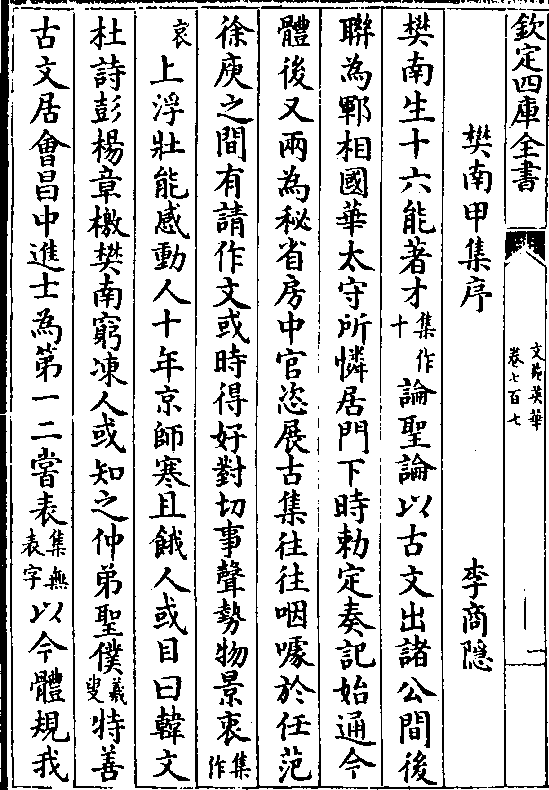 欽定四庫全書
文苑英華
卷七百七
二
樊南甲集序　李商隱
樊南生十六能著才集作十論聖論以古文出諸公間後
聯為鄆相國華太守所憐居門下時勅定奏記始通今
體後又兩為秘省房中官恣展古集往往咽噱於任范
徐庾之間有請作文或時得好對切事聲勢物景衷集作
哀上浮壯能感動人十年京師寒且餓人或目曰韓文
杜詩彭楊章檄樊南窮凍人或知之仲弟聖僕羲叟特善
古文居會昌中進士為第一二嘗表集無表字以今體規我